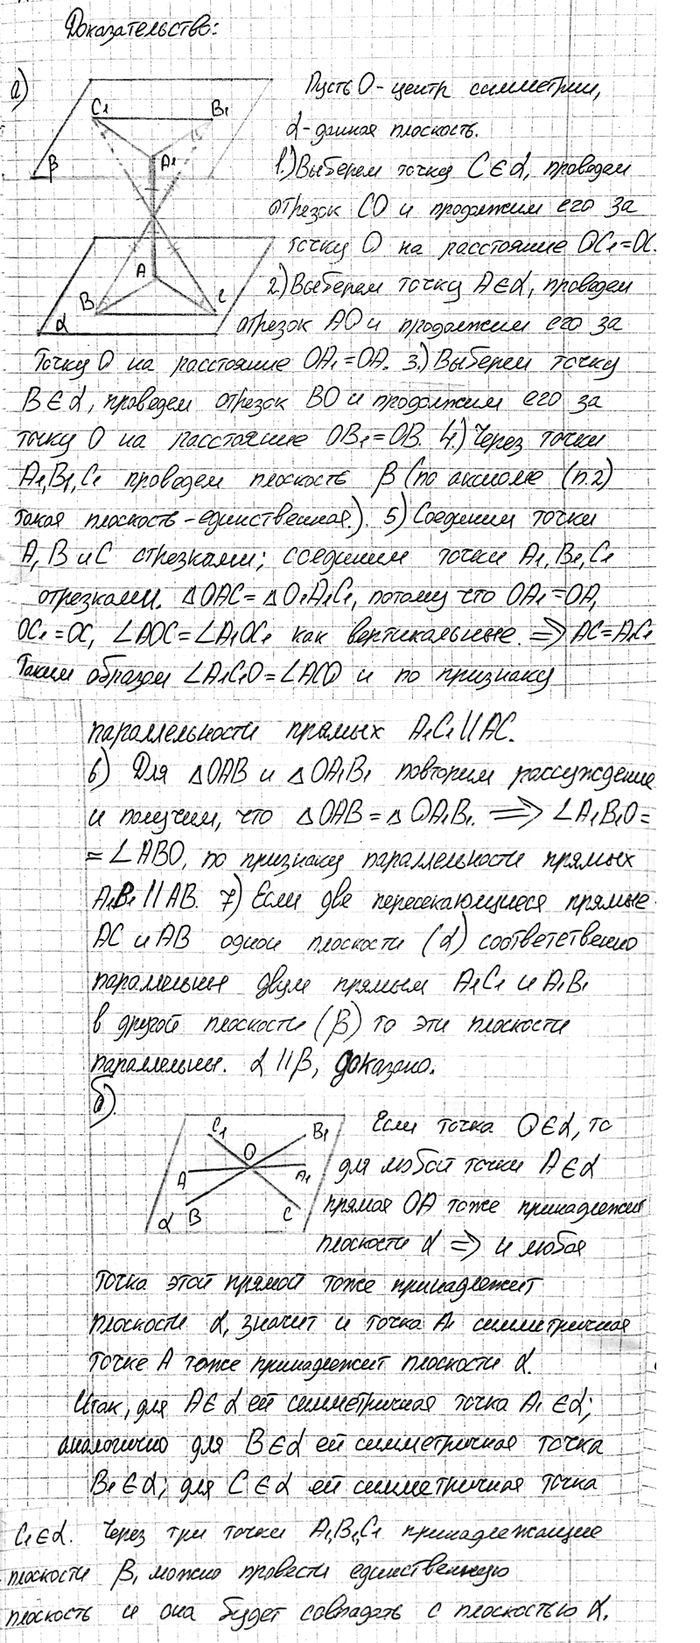 Доказательство:
а)
Пусть O - центр симметрии,
α - данная плоскость.
1.) Выберем точку C∈α, проведем
отрезок CO и продолжим его за
точку O на расстояние OC₁=OC.
2) Выберем точку A∈α, проведем
отрезок AO и продолжим его за
точку O на расстояние OA₁=OA. 3.) Выберем точку
B∈α, проведем отрезок BO и продолжим его за
точку O на расстояние OB₁=OB. 4.) Через точки
A₁,B₁,C₁ проведем плоскость β (по аксиоме (п.2)
такая плоскость - единственная.). 5) Соединим точки
A, B и C отрезками; соединим точки A₁, B₁, C₁
отрезками. △OAC = △O₁A₁C₁, потому что OA₁=OA,
OC₁=OC, ∠AOC=∠A₁OC₁ как вертикальные. ⟹ AC=A₁C₁
Таким образом ∠A₁C₁O=∠ACO и по признаку
параллельности прямых A₁C₁ || AC.
6) Для △OAB и △OA₁B₁ повторим рассуждение
и получим, что △OAB = △OA₁B₁. ⟹ ∠A₁B₁O=
= ∠ABO, по признаку параллельности прямых
A₁B₁ || AB. 7) Если две пересекающиеся прямые
AC и AB одной плоскости (α) соответственно
параллельны двум прямым A₁C₁ и A₁B₁
в другой плоскости (β) то эти плоскости
параллельны. α || β, доказано.
б).
Если точка O∈α, то
для любой точки A∈α
прямая OA тоже принадлежит
плоскости α ⟹ и любая
точка этой прямой тоже принадлежит
плоскости α, значит и точка A₁ симметричная
точке A тоже принадлежит плоскости α.
Итак, для A∈α ей симметричная точка A₁∈α;
аналогично для B∈α ей симметричная точка
B₁∈α; для C∈α ей симметричная точка
C₁∈α. Через три точки A₁,B₁,C₁ принадлежащие
плоскости β, можно провести единственную
плоскость и она будет совпадать с плоскостью α.
C₁ B₁
β A₁
A
B C
α
C₁ B₁
O
A A₁
α B C